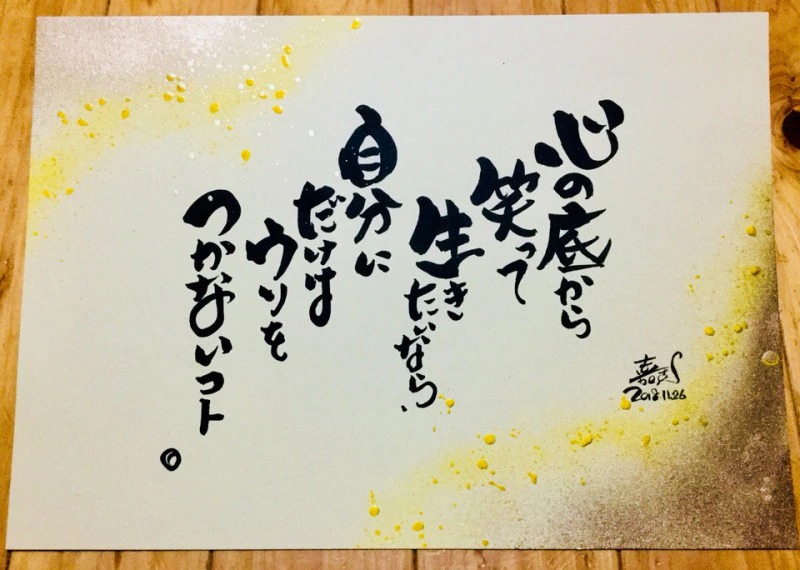 心の底から
笑って
生き
たいなら、
自分に
だけは
ウソを
つかないコト。
2018.11.26